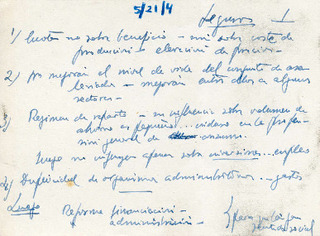 5/21/4
Seguros 1
1/ Cuotas no sobre beneficio – sino sobre coste de
producción – elevación de precios –
2/ no mejoran el nivel de vida del conjunto de asa
lariados – mejoran unos a algunos
sectores –
3/ Regimen de reparto – su influencia sobre volumen de
ahorro es pequeño... en la
general de consumo.
Luego no influyen apenas sobre inversiones... empleo
4/ Duplicidad de organismos administrativos – gastos
Luego Reforma financiación –
administración –